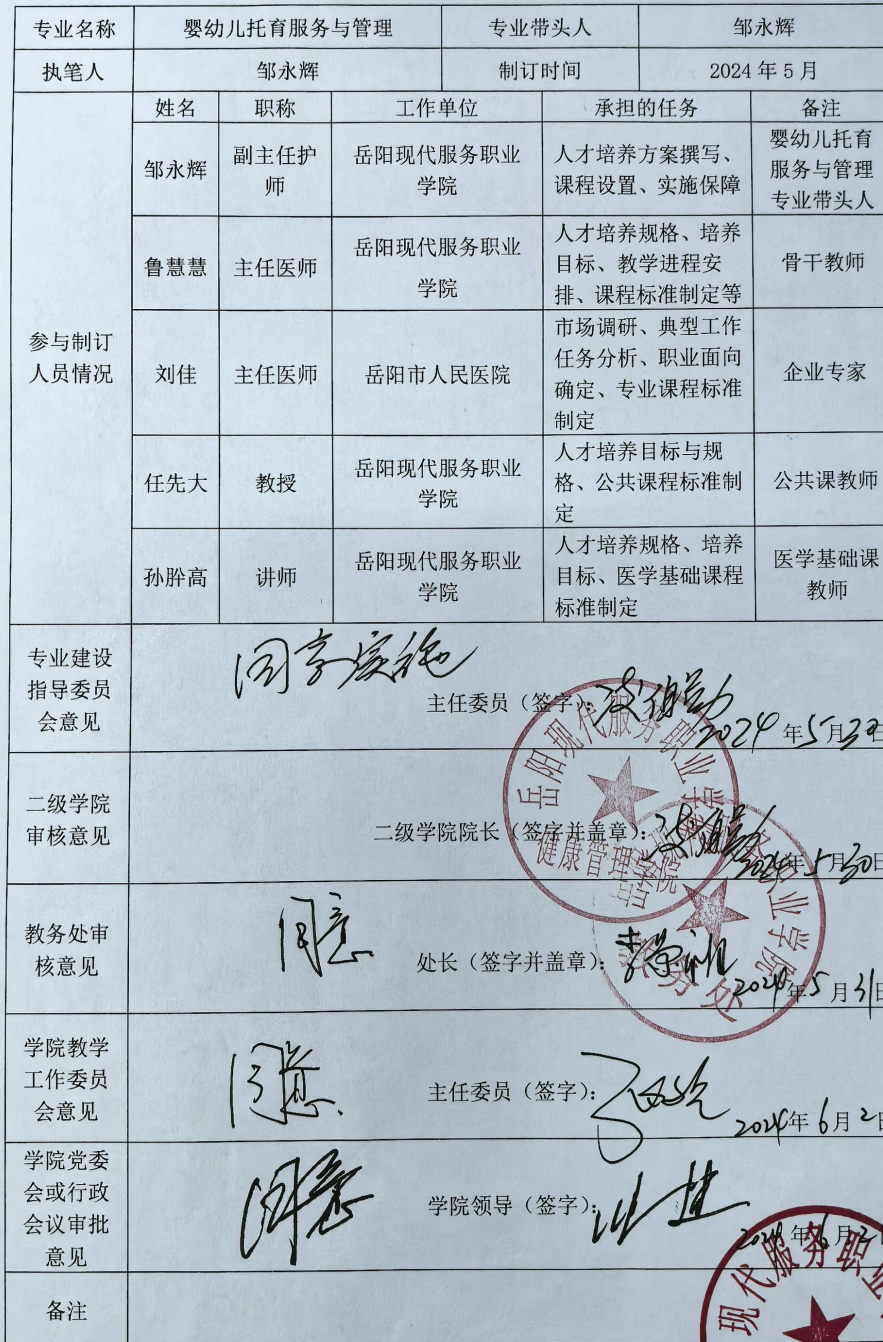 专业名称 婴幼儿托育服务与管理 专业带头人 邹永辉
执笔人 邹永辉 制订时间 2024年5月
参与制订
人员情况
姓名 职称 工作单位 承担的任务 备注
邹永辉
副主任护
师
岳阳现代服务职业
学院
人才培养方案撰写、
课程设置、实施保障
婴幼儿托育
服务与管理
专业带头人
鲁慧慧
主任医师
岳阳现代服务职业
学院
人才培养规格、培养
目标、教学进程安
排、课程标准制定等
骨干教师
刘佳
主任医师
岳阳市人民医院
市场调研、典型工作
任务分析、职业面向
确定、专业课程标准
制定
企业专家
任先大
教授
岳阳现代服务职业
学院
人才培养目标与规
格、公共课程标准制
定
公共课教师
孙肸高
讲师
岳阳现代服务职业
学院
人才培养规格、培养
目标、医学基础课程
标准制定
医学基础课
教师
专业建设
指导委员
会意见
同意实施
主任委员（签字）：
2024年5月30日
二级学院
审核意见
二级学院院长（签字并盖章）：
2024年5月30日
岳阳现代服务职业学院
健康管理学院
教务处审
核意见
同意
处长（签字并盖章）：
2024年5月31日
职业学院
教务处
学院教学
工作委员
会意见
同意
主任委员（签字）：
2024年6月2日
学院党委
会或行政
会议审批
意见
同意
学院领导（签字）：
2024年6月2日
现代服务职业
备注